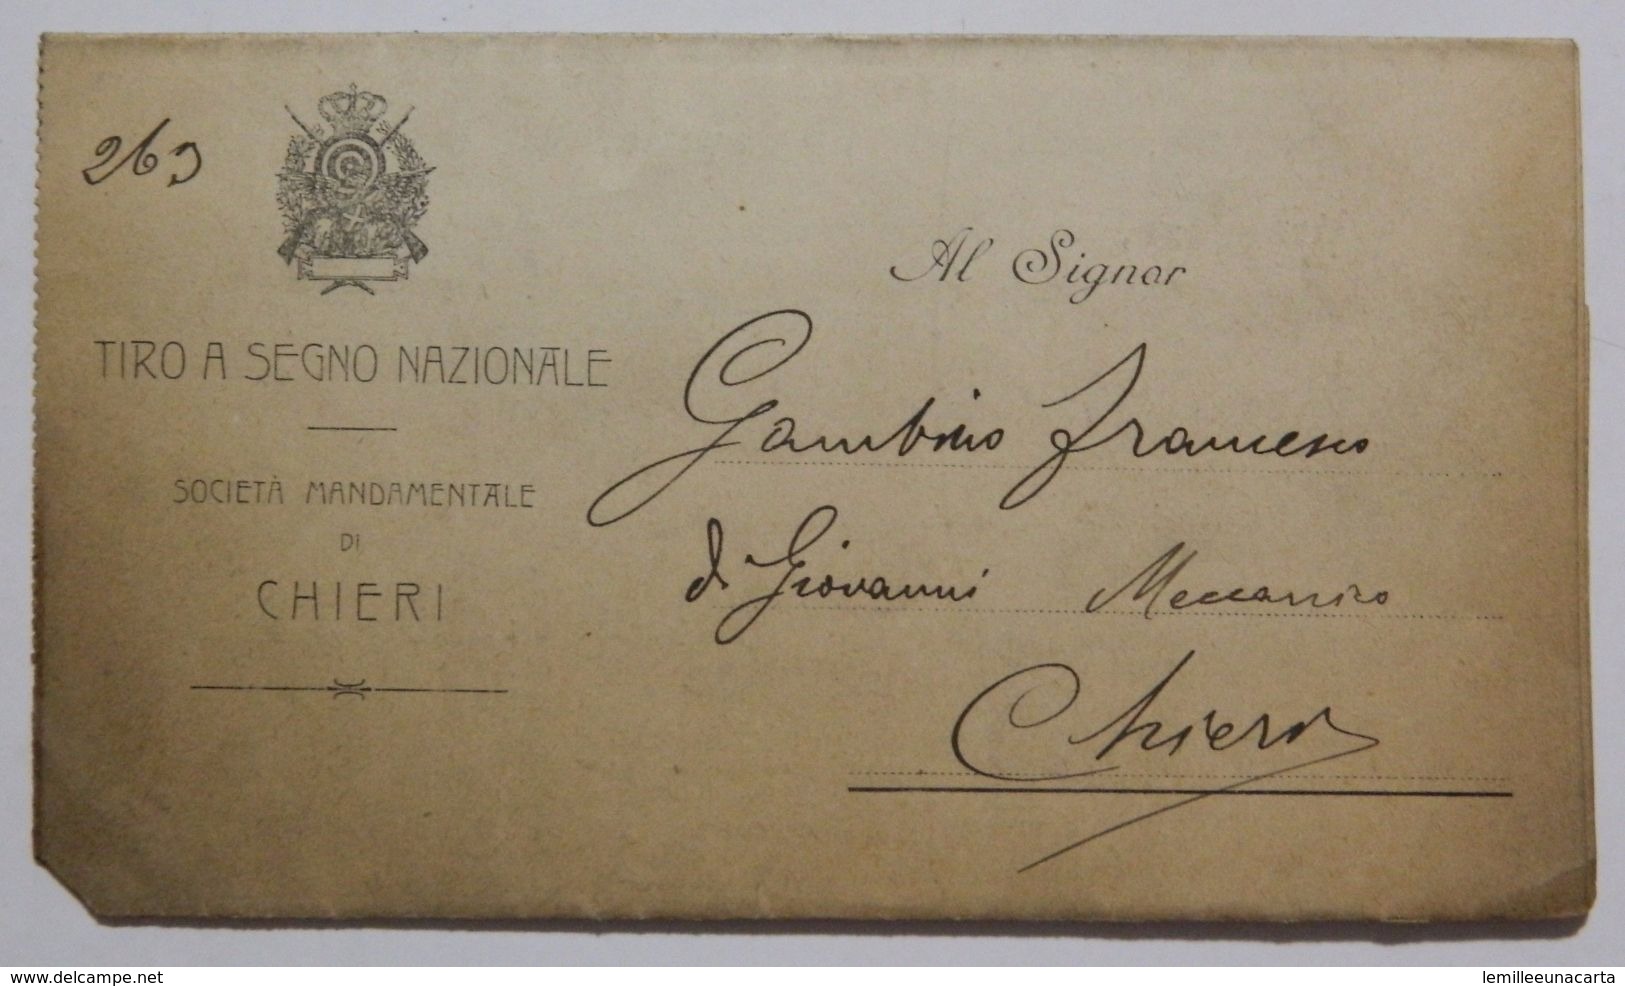 263
TIRO A SEGNO NAZIONALE
SOCIETÀ MANDAMENTALE
DI
CHIERI
Al Signor
Gambino Francesco
di Giovanni Meccanico
Chieri
www.delcampe.net
lemilleeunacarta